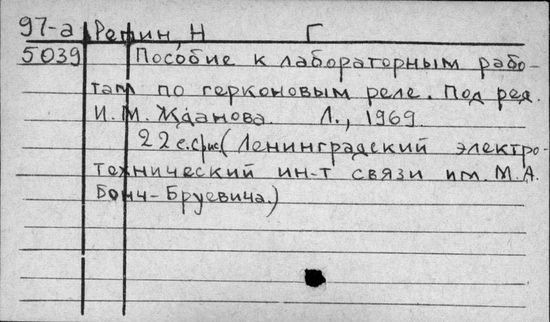 97-а Репин, Н Г
5039 Пособие к лабораторным рабо-
там по герконовым реле. Под ред.
И. М. Жданова. Л., 1969.
22 с. с рис. (Ленинградский электро-
технический ин-т связи им. М. А.
Бонч-Бруевича.)